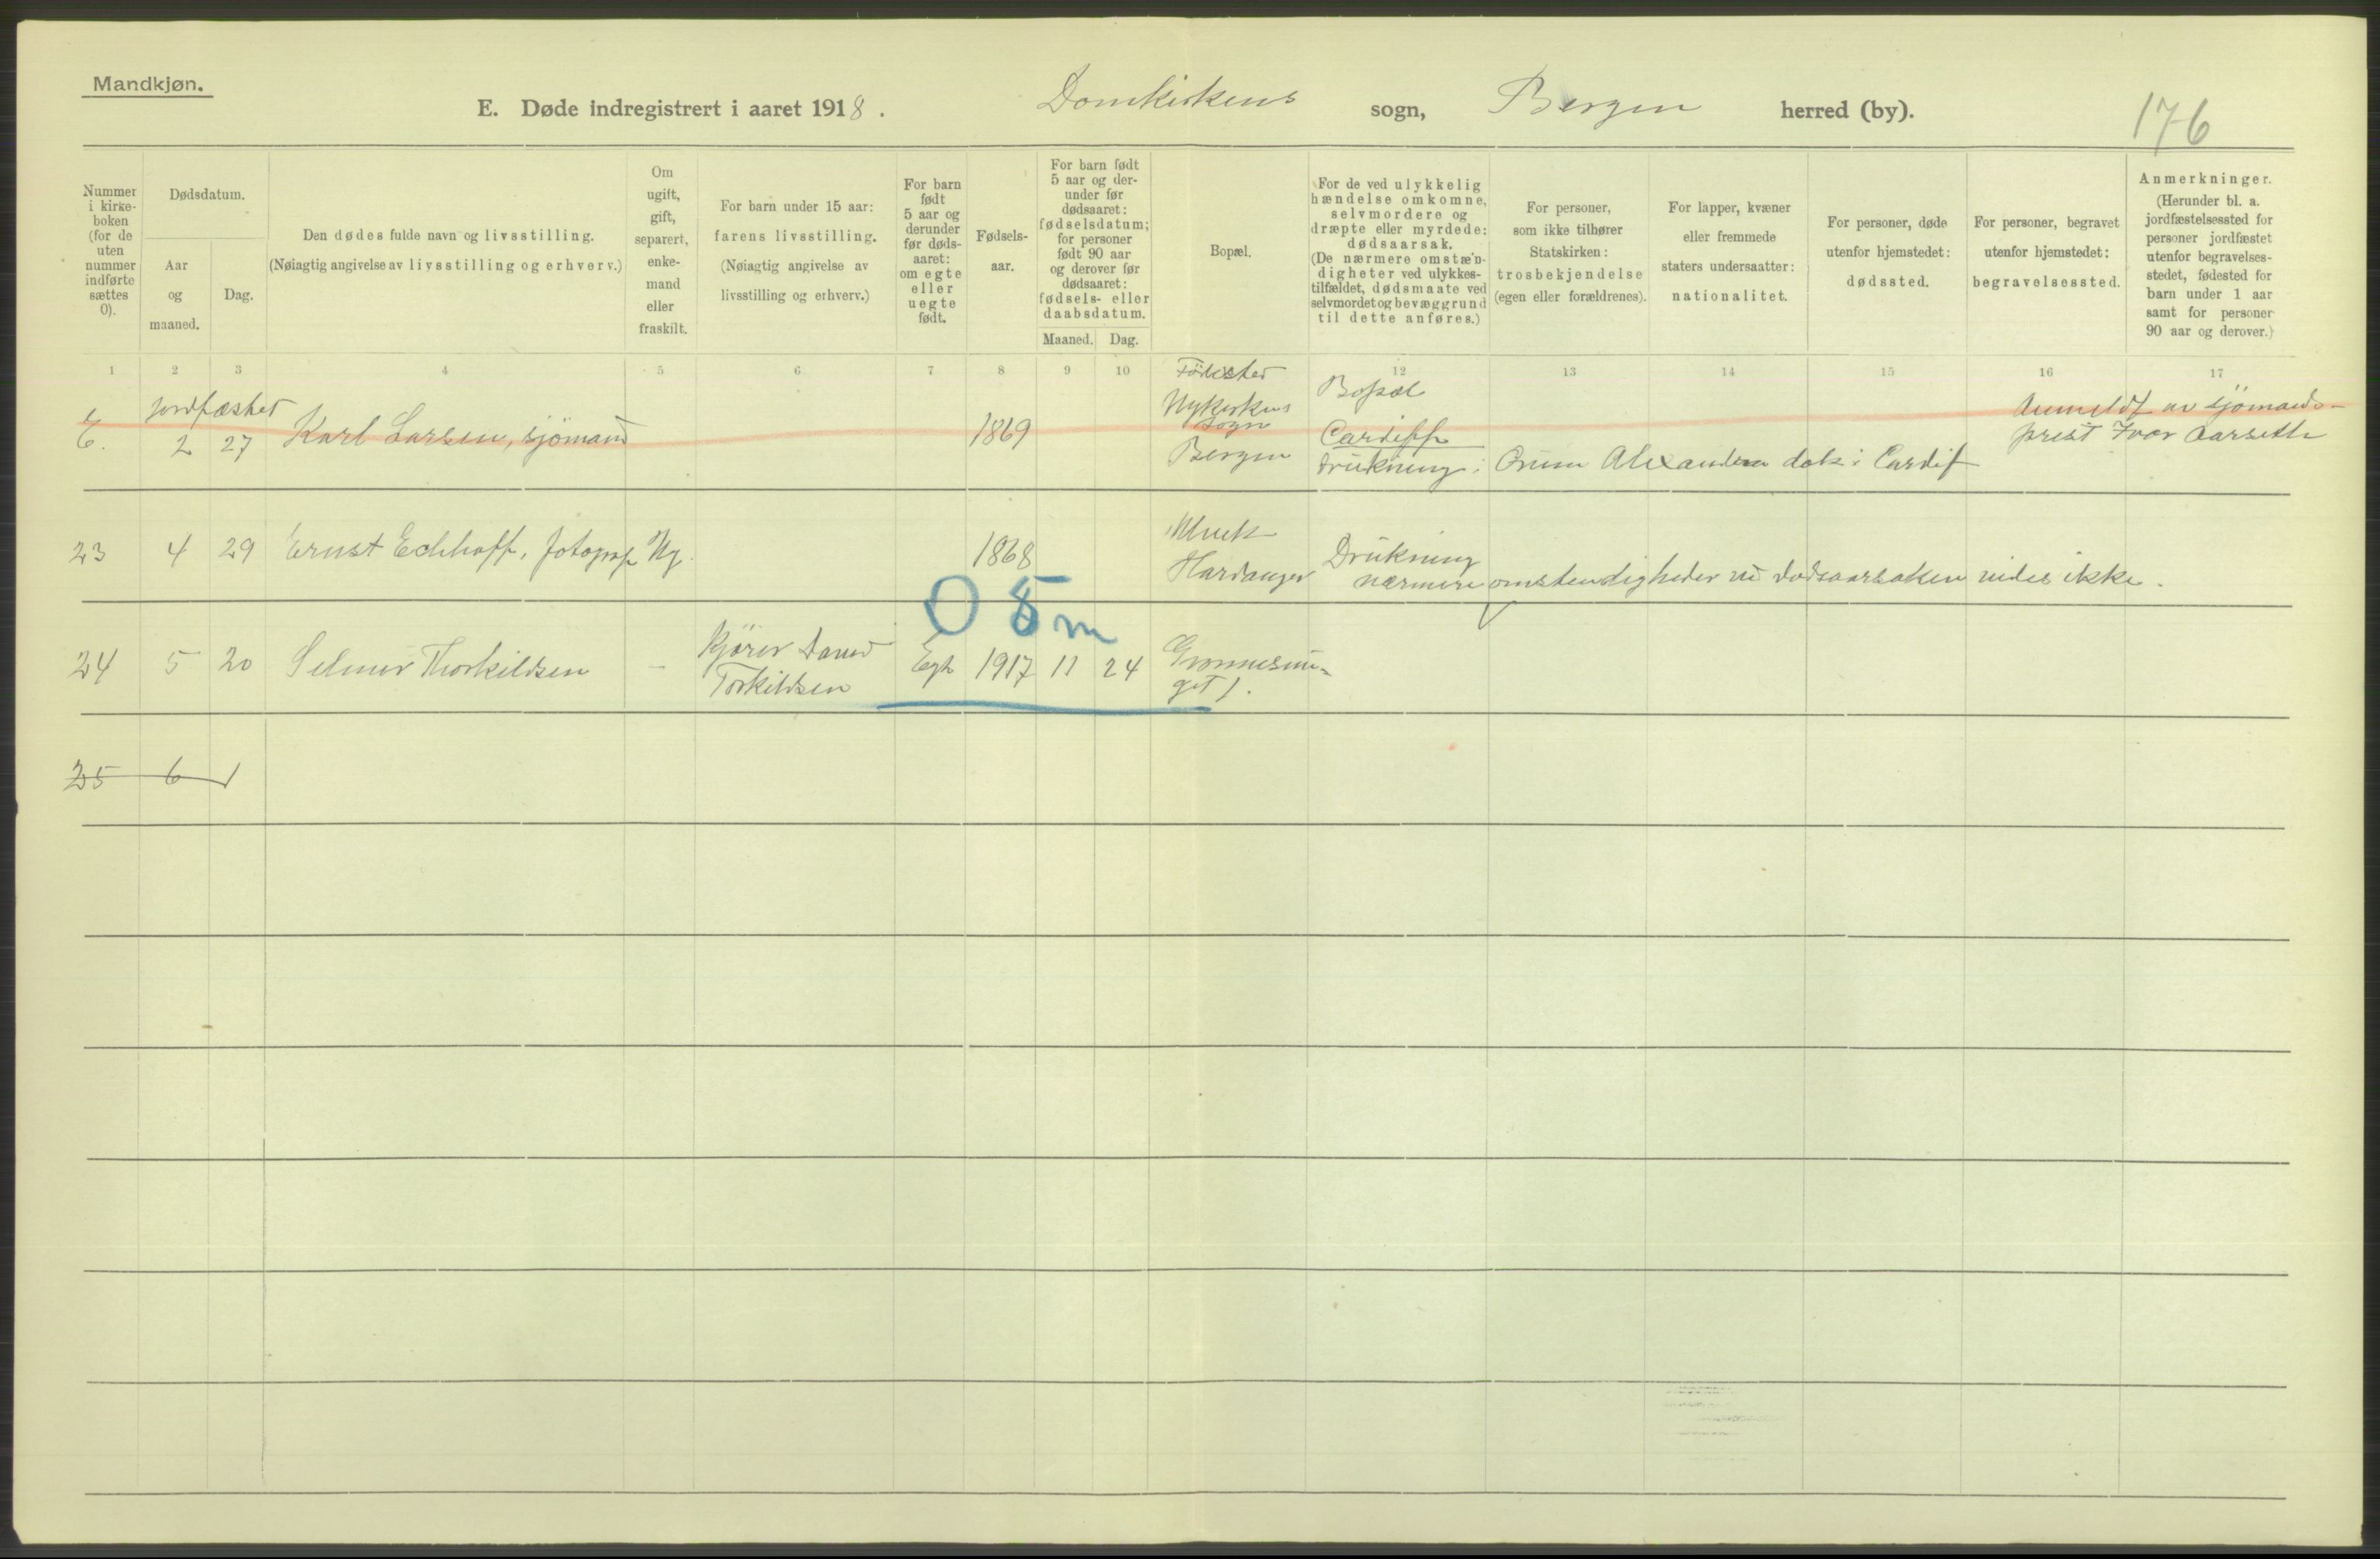 Mandkjøn.
E. Døde indregistrert i aaret 1918. Domkirkens sogn, Bergen herred (by).
176
Nummer i kirkeboken (for de uten nummer indførte sættes 0).
Dødsdatum.
Aar og maaned.
Dag.
Den dødes fulde navn og livsstilling.
(Nøiagtig angivelse av livsstilling og erhverv.)
Om ugift, gift, separert, enkemand eller fraskilt.
For barn under 15 aar: farens livsstilling.
(Nøiagtig angivelse av livsstilling og erhverv.)
For barn født 5 aar og derunder før dødsaaret: om egte eller uegte født.
Fødselsaar.
For barn født 5 aar og derunder før dødsaaret: fødselsdatum; for personer født 90 aar og derover før dødsaaret: fødsels- eller daabsdatum.
Maaned. Dag.
Bopæl.
For de ved ulykkelig hændelse omkomne, selvmordere og dræpte eller myrdede: dødsaarsak.
(De nærmere omstændigheter ved ulykkestilfældet, dødsmaate ved selvmordet og bevæggrund til dette anføres.)
For personer, som ikke tilhører Statskirken: trosbekjendelse (egen eller forældrenes).
For lapper, kvæner eller fremmede staters undersaatter: nationalitet.
For personer, døde utenfor hjemstedet: dødssted.
For personer, begravet utenfor hjemstedet: begravelsessted.
Anmerkninger.
(Herunder bl. a. jordfæstelsessted for personer jordfæstet utenfor begravelsesstedet, fødested for barn under 1 aar samt for personer 90 aar og derover.)
1 2 3 4 5 6 7 8 9 10 12 13 14 15 16 17
jordfæstet Födested Bopæl
2 27 Karl Larsen, sjömand 1869 Nykirkens sogn Bergen Cardiff Anmeldt av sjömandsprest Ivar Aarseth
Drukning i Alexandra dok i Cardif
23 4 29 Ernst Echhoff, fotograf Ug. 1868 Hardanger Drukning
nærmere omstendigheder ved dødsaarsaken vides ikke.
O 5 m
24 5 20 Selmer Thorkildsen - Kjører Torkildsen Egte 1917 11 24
25 6 1